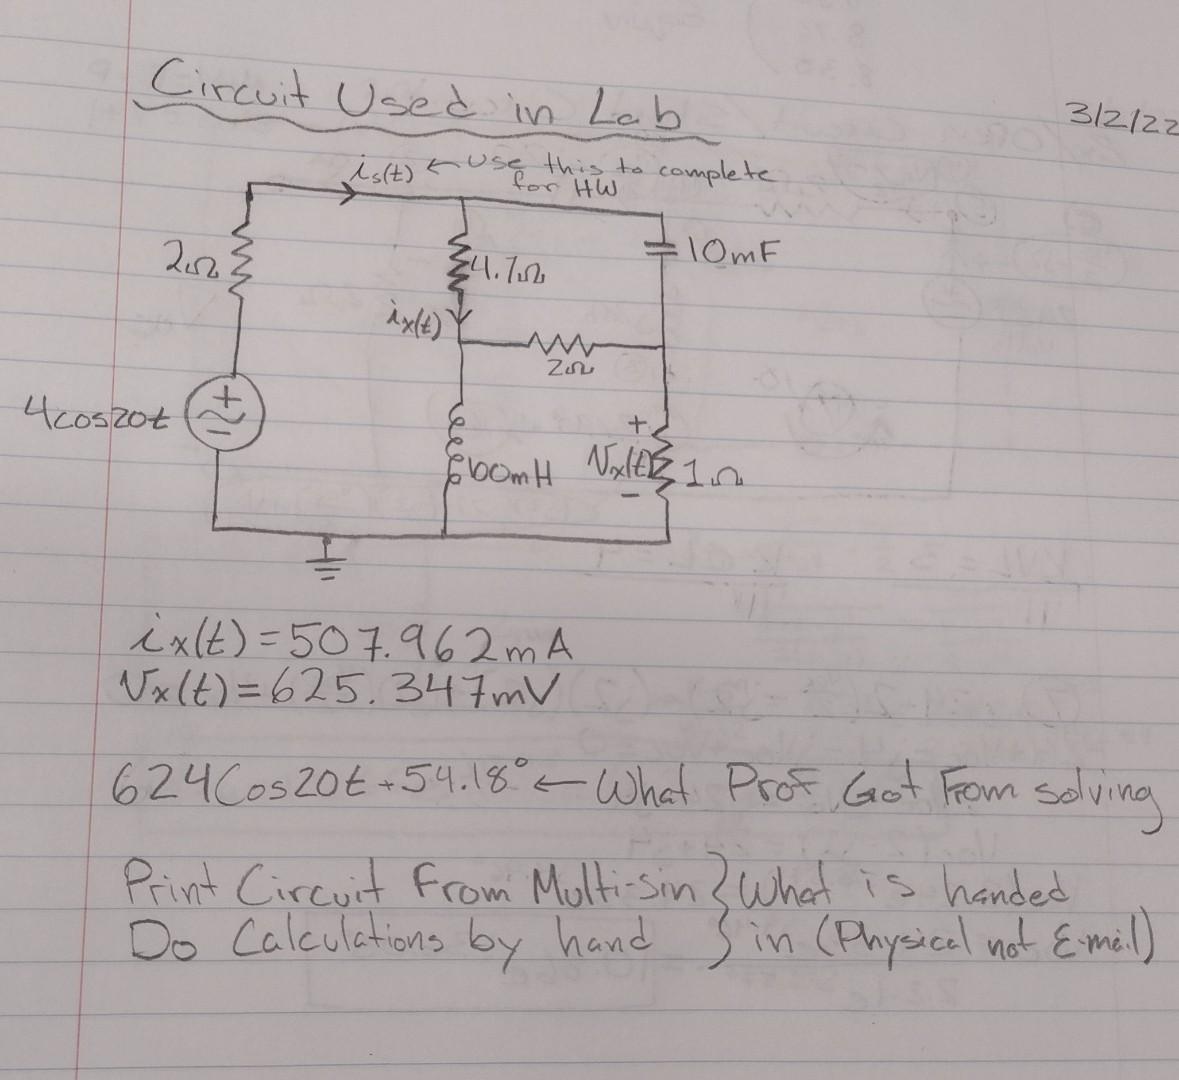 Circuit Used in Lab
3/2/22
is(t) ← Use this to complete
for HW
2Ω
4.7Ω
10mF
ix(t)
2Ω
4cos20t
+
−
60mH
+
Vx(t)
−
1Ω
ix(t) = 507.962mA
Vx(t) = 625.347mV
624Cos20t + 54.18° ← What Prof Got From solving
Print Circuit From Multi-sin } What is handed
Do Calculations by hand } in (Physical not E-mail)